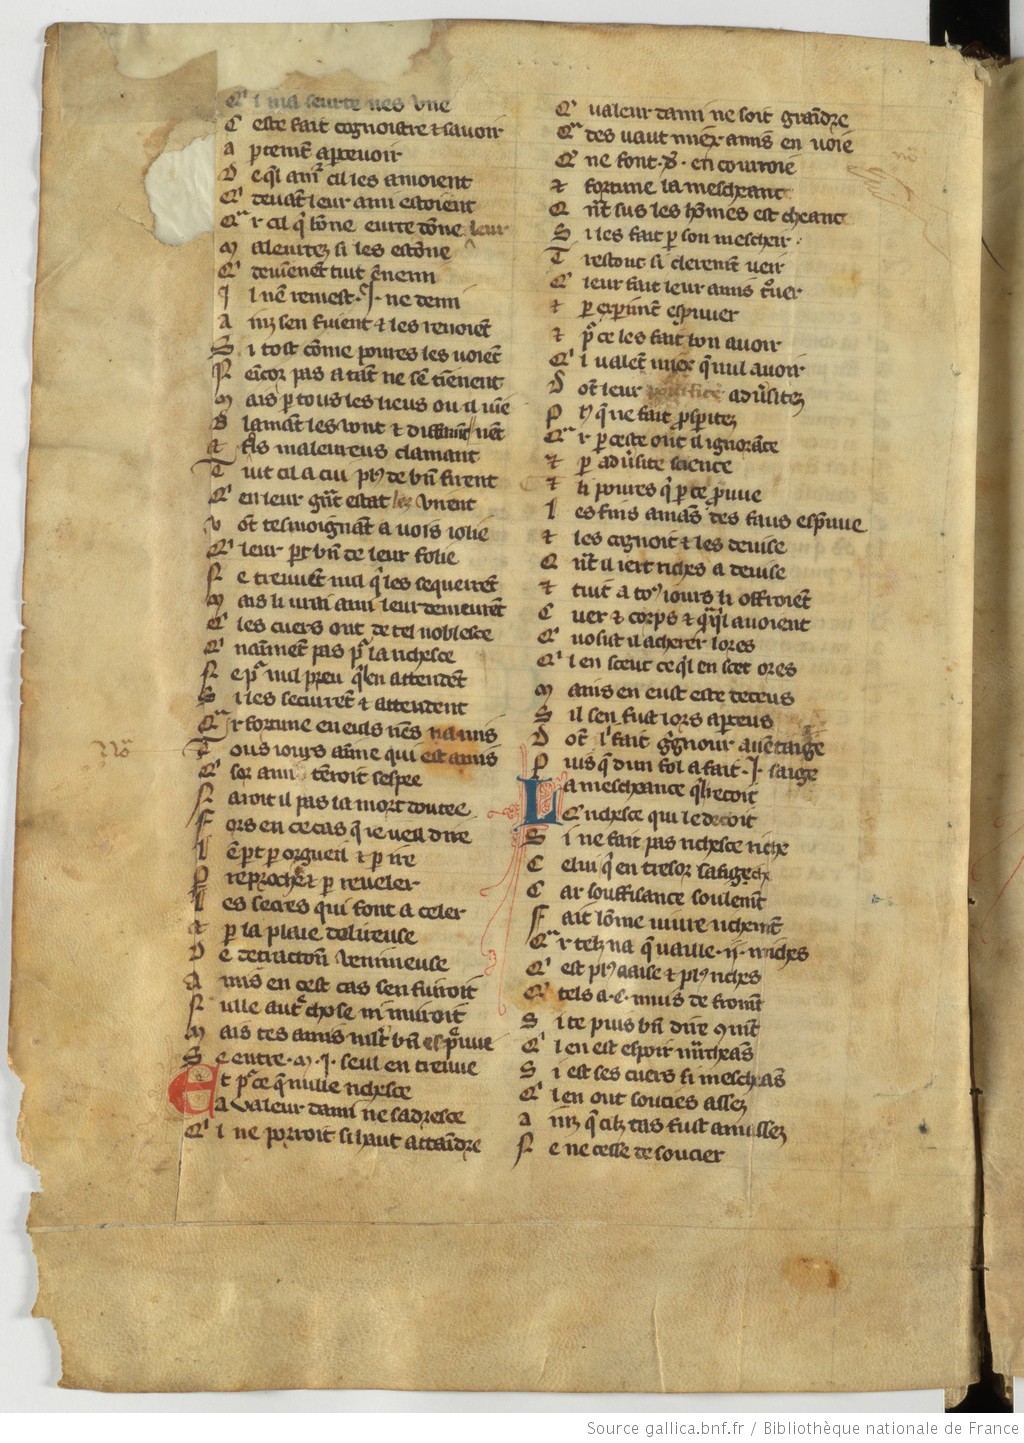 Q'i mal seurte nes vne
C este fait cognoistre ⁊ sauoir
a ꝑtemt aꝑceuoir
D e q̃l am̃r cil les amoient
Q' deuãt leur ami estoient
Qar cil q̃ bõne eurte dõne leur
M aleurtez si les estõne
Q' deuienẽt tuit ẽnemi
I l nẽ remest .I. ne demi
A inz sen fuient ⁊ les renoiẽt
S i tost cõme poures les uoiẽt
N encor pas a tãt ne sẽ tienent
M ais ꝑ tous les lieus ou il uiẽ
B lamãt les vont ⁊ diffamãt uẽt
⁊ fols maleureus clamant
T uit cil a cui plꝰ de bñ firent
Q' en leur gñt estat les virent
V õt tesmoignãt a uois iolie
Q' leur ꝑt bñ de leur folie
N e treuuẽt nul q̃ les sequeurẽt
M ais li vrai ami leur demeurẽt
Q' les cuers ont de tel noblesce
Q' naimẽt pas pͬ la richesce
N e pͬ nul preu q̃l en attendẽt
S i les secuirẽt ⁊ attendent
Qar fortune en euls riẽs na mis
T ous iours aime qui est amis
Q' sor ami teroit sespee
N aroit il pas la mort doutee
F ors en ce cas q̃ ie ueil dire
l ẽ ꝑt ꝑ orgueil ⁊ ꝑ ire
P reproche ⁊ ꝑ reueler
L es secres qui font a celer
⁊ ꝑ la plaie dolireuse
D e detractiou venimeuse
A mis en cest cas sen fuiroit
N ulle autͬ chose ni nuiroit
M ais tes amis mlt bñ espruue
S e entre .M. .I. seul en treuue
Et pͬ ce q̃ nulle richesce
a valeur dami ne sadresce
Q'i ne porroit si haut attaĩdre
Q' valeur dami ne soit graĩdre
Qades vaut miex amis en uoie
Q' ne font .d. en courroie
⁊ fortune la mescheant
Q ñt sus les hõmes est cheant
S i les fait ꝑ son mescheir
T restout si cleremẽt ueir
Q' leur fait leur amis trouer
⁊ ꝑ experimẽt esprouer
⁊ pͬ ce les fait bon auoir
Q'i valẽt miex q̃ nul auoir
D õt leur adũsitez
P lꝰ q̃ ne fait prosperitez
Qar ꝑ ceste ont il ignorãce
⁊ ꝑ adũsite science
⁊ li poures q̃ ꝑ ce prouue
l es fins amis des faus esprouue
⁊ les cognoit ⁊ les deuise
Q ñt il iert riches a deuise
⁊ tuit a tosiours li offroiẽt
C uer ⁊ corps ⁊ q̃nql auoient
Q' uosist il acheter lores
Q'i en sceut ce q̃l en scet ores
M ains en eust este deceus
S il sen fust lors aꝑceus
D õt li fait grignour auẽtaige
P uis q̃ dun fol a fait .I. saige
La mescheance q̃l recoit
Q' richesce qui le decoit
S i ne fait pas richesce riche
C elui q̃ en tresor la fiche
C ar souffisance soulemẽt
F ait lõme viure richemẽt
Qar telz na q̃ vaille .ii. miches
Q' est plꝰ aaise ⁊ plꝰ riches
Q' tels a .c. muis de fromẽt
S i te puis bñ dire ꝯmẽt
Q'i en est espoir mͬcheãs
S i est ses cuers si mescheãs
Q'i en ont soucies assez
A inz q̃ cilz tas fust amassez
N e ne cesse de soucier
Source gallica.bnf.fr / Bibliothèque nationale de France